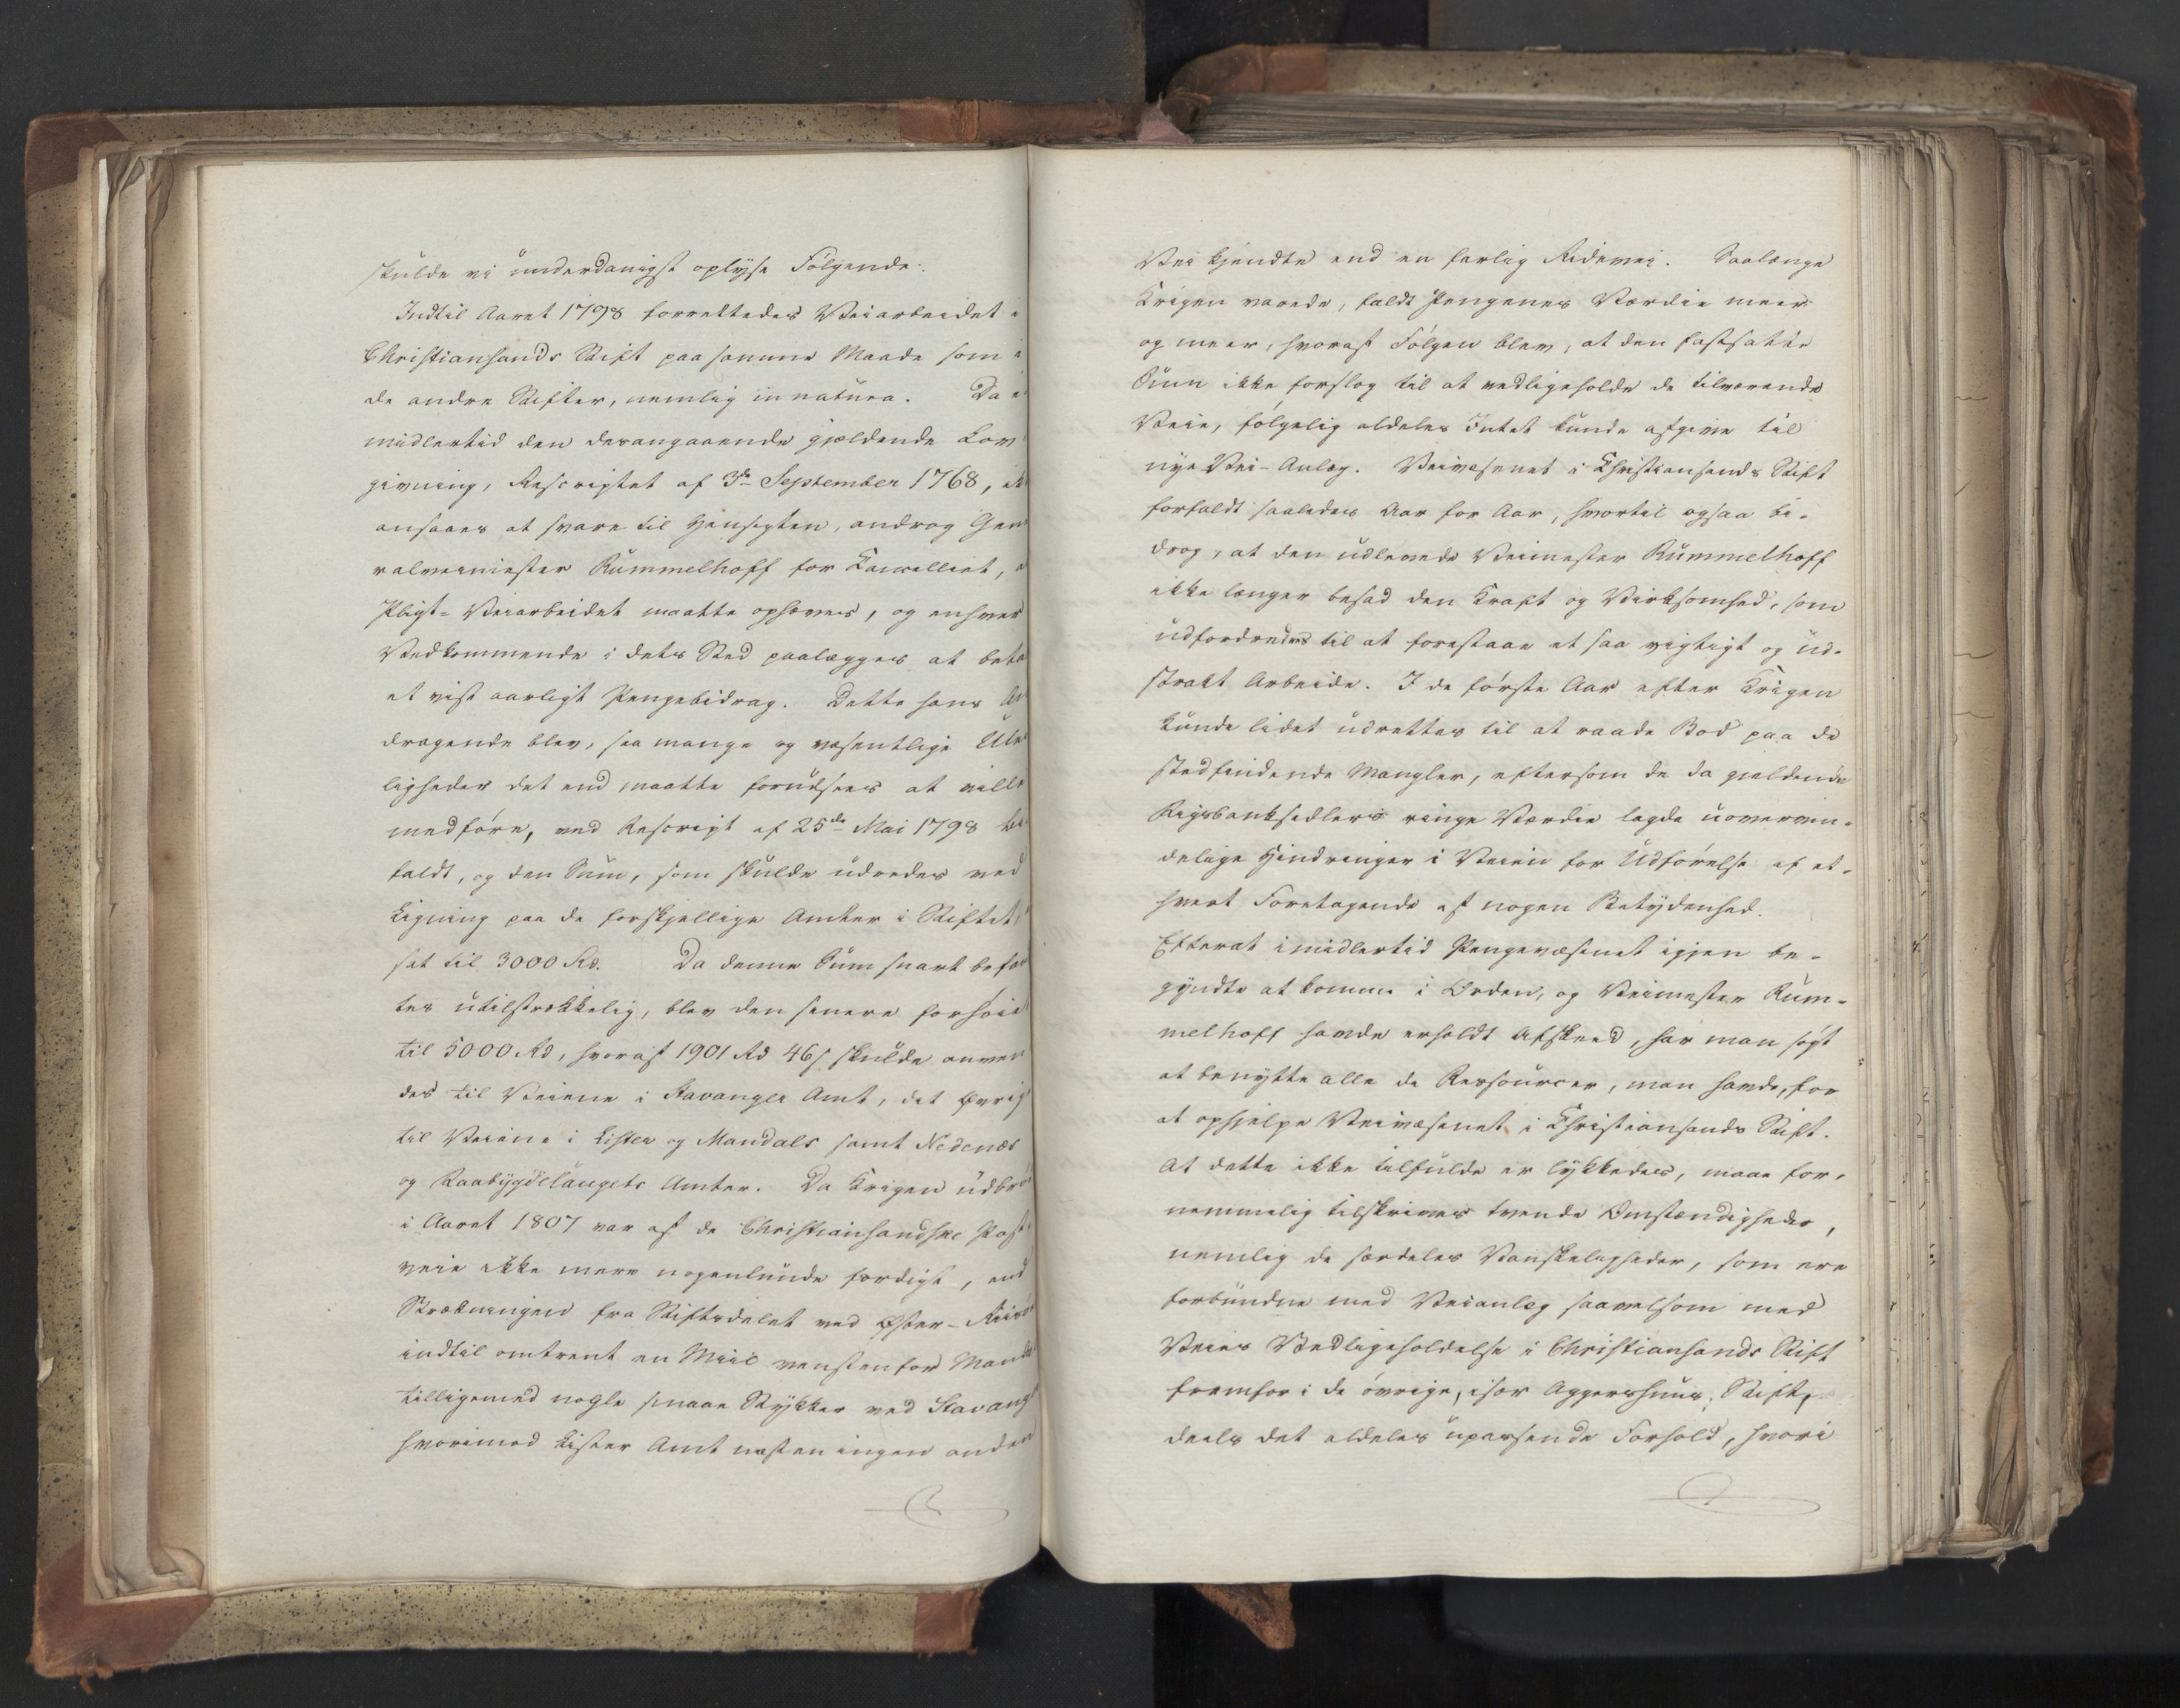 skulde vi underdanigst oplyse Følgende:
Indtil Aaret 1798 forrettedes Veiarbeidet i
Christiansands Stift paa samme Maade som i
de andre Stifter, nemlig in natura. Da i
midlertid den desangaaende gjældende Lov
givning, Rescriptet af 3de September 1768, ik
ansaaes at svare til Hensigten, androg Gen
ralveimester Rummelhoff for Cancelliet, a
Pligt-Veiarbeidet maatte ophæves, og enhver
Vedkommende i dets Sted paalægges at beta
et vist aarligt Pengebidrag. Dette hans An
dragende blev, saa mange og væsentlige Ule
ligheder det end maatte forudsees at ville
medføre, ved Rescript af 25de Mai 1798 bi
faldt, og den Sum, som skulde udredes ved
Ligning paa de forskjellige Amter i Stiftet,
sat til 3000 Rd. Da denne Sum snart befan
tes utilstrækkelig, blev den senere forhøiet
til 5000 Rd, hvoraf 1901 Rd 46 s skulde anven
des til Veiene i Stavanger Amt, det øvrig
til Veiene i Lister og Mandals samt Nedenæs
og Raabygdelaugets Amter. Da Krigen udbrø
i Aaret 1807 var af de Christiansandske Post
veie ikke mere nogenlunde færdigt, end
Strækningen fra Stiftsdelet ved Øster-Riisø
indtil omtrent en Miil vestenfor Manda
tilligemed nogle smaae Stykker ved Stavang
hvorimod Lister Amt næsten ingen anden
Vei kjendte end en farlig Ridevei. Saalænge
Krigen varede, faldt Pengenes Værdie meer
og meer, hvoraf Følgen blev, at den fastsatte
Sum ikke forslog til at vedligeholde de tilværende
Veie, følgelig aldeles Intet kunde afgive til
nye Vei-Anlæg. Veivæsenet i Christiansands Stift
forfaldt saaledes Aar for Aar, hvortil ogsaa bi-
drog, at den udlevede Veimester Rummelhoff
ikke længer besad den Kraft og Virksomhed, som
udfordredes til at forestaae et saa vigtigt og ud-
strakt Arbeide. I de første Aar efter Krigen
kunde lidet udrettes til at raade Bod paa de
stedfindende Mangler, eftersom de da gjældende
Rigsbanksedlers ringe Værdie lagde uovervin-
delige Hindringer i Veien for Udførelse af et-
hvert Foretagende af nogen Betydenhed.
Efterat imidlertid Pengevæsenet igjen be-
gyndte at komme i Orden, og Veimester Rum-
melhoff havde erholdt Afskeed, har man søgt
at benytte alle de Ressourcer, man havde, for
at ophjelpe Veivæsenet i Christiansands Stift.
At dette ikke tilfulde er lykkedes, maae for-
nemmelig tilskrives tvende Omstændigheder,
nemlig de særdeles Vanskeligheder, som ere
forbundne med Veianlæg saavelsom med
Veies Vedligeholdelse i Christiansands Stift
fremfor i de øvrige, især Aggershuus, Stift,
deels det aldeles upassende Forhold, hvori